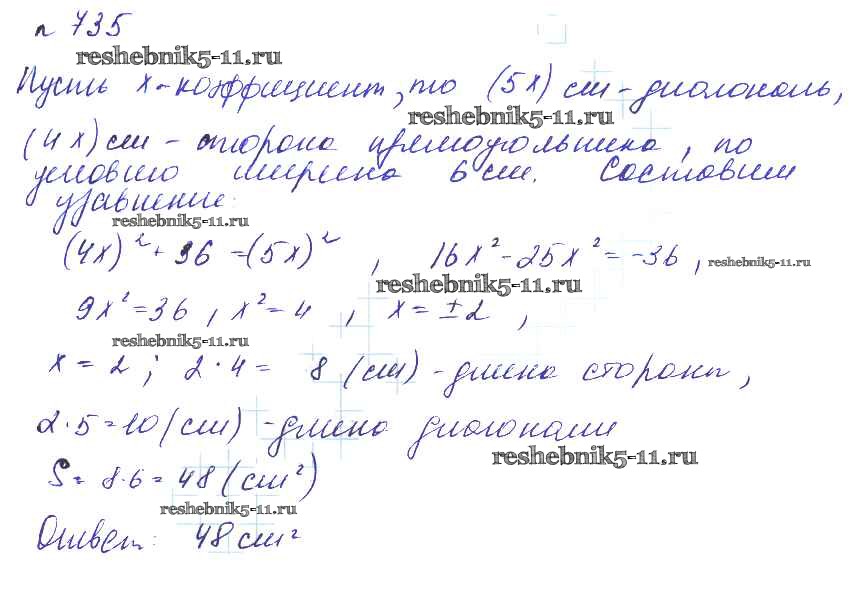 № 735
reshebnik5-11.ru
Пусть x - коэффициент, то (5x) см - диагональ,
reshebnik5-11.ru
(4x) см - сторона прямоугольника, по
условию ширина 6 см. Составим
уравнение:
reshebnik5-11.ru
(4x)² + 36 = (5x)², 16x² - 25x² = -36, reshebnik5-11.ru
reshebnik5-11.ru
9x² = 36, x² = 4, x = ±2,
reshebnik5-11.ru
x = 2; 2 · 4 = 8 (см) - длина стороны,
2 · 5 = 10 (см) - длина диагонали
reshebnik5-11.ru
S = 8 · 6 = 48 (см²)
reshebnik5-11.ru
Ответ: 48 см²